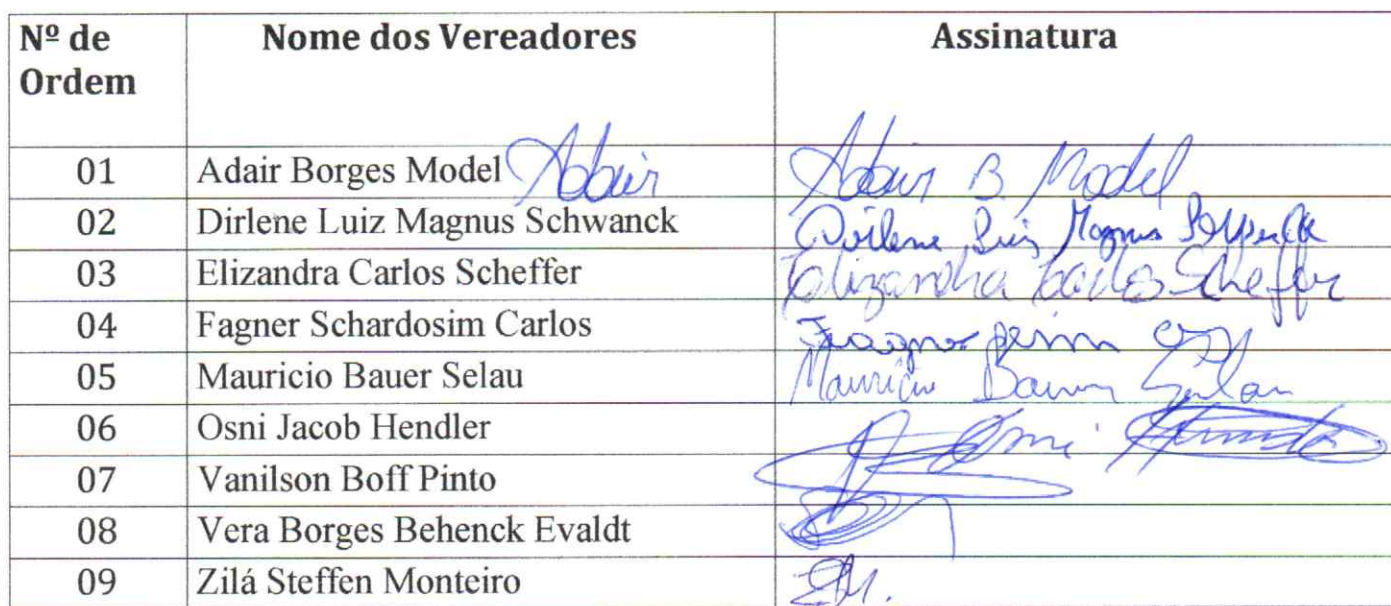 Nº de Ordem Nome dos Vereadores Assinatura
01 Adair Borges Model Adair Adair B. Model
02 Dirlene Luiz Magnus Schwanck Dirlene Luiz Magnus
03 Elizandra Carlos Scheffer Elizandra Carlos Scheffer
04 Fagner Schardosim Carlos
05 Mauricio Bauer Selau Mauricio Bauer Selau
06 Osni Jacob Hendler Osni
07 Vanilson Boff Pinto
08 Vera Borges Behenck Evaldt
09 Zilá Steffen Monteiro